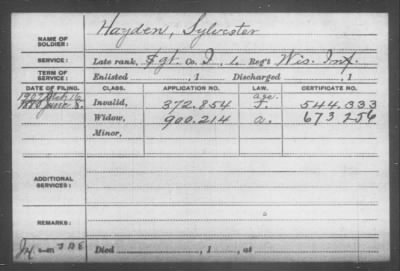 Hayden, Sylvester
NAME OF SOLDIER:
SERVICE: Late rank, Sgt. Co. I, 6 Reg't Wis. Inf.
TERM OF SERVICE: Enlisted , 1 Discharged , 1
DATE OF FILING. CLASS. APPLICATION NO. LAW. CERTIFICATE NO.
Age
Invalid, 372.854 544.333
June Widow, 900.214 a. 673256
Minor,
ADDITIONAL SERVICES:
REMARKS:
Died , 1 , at